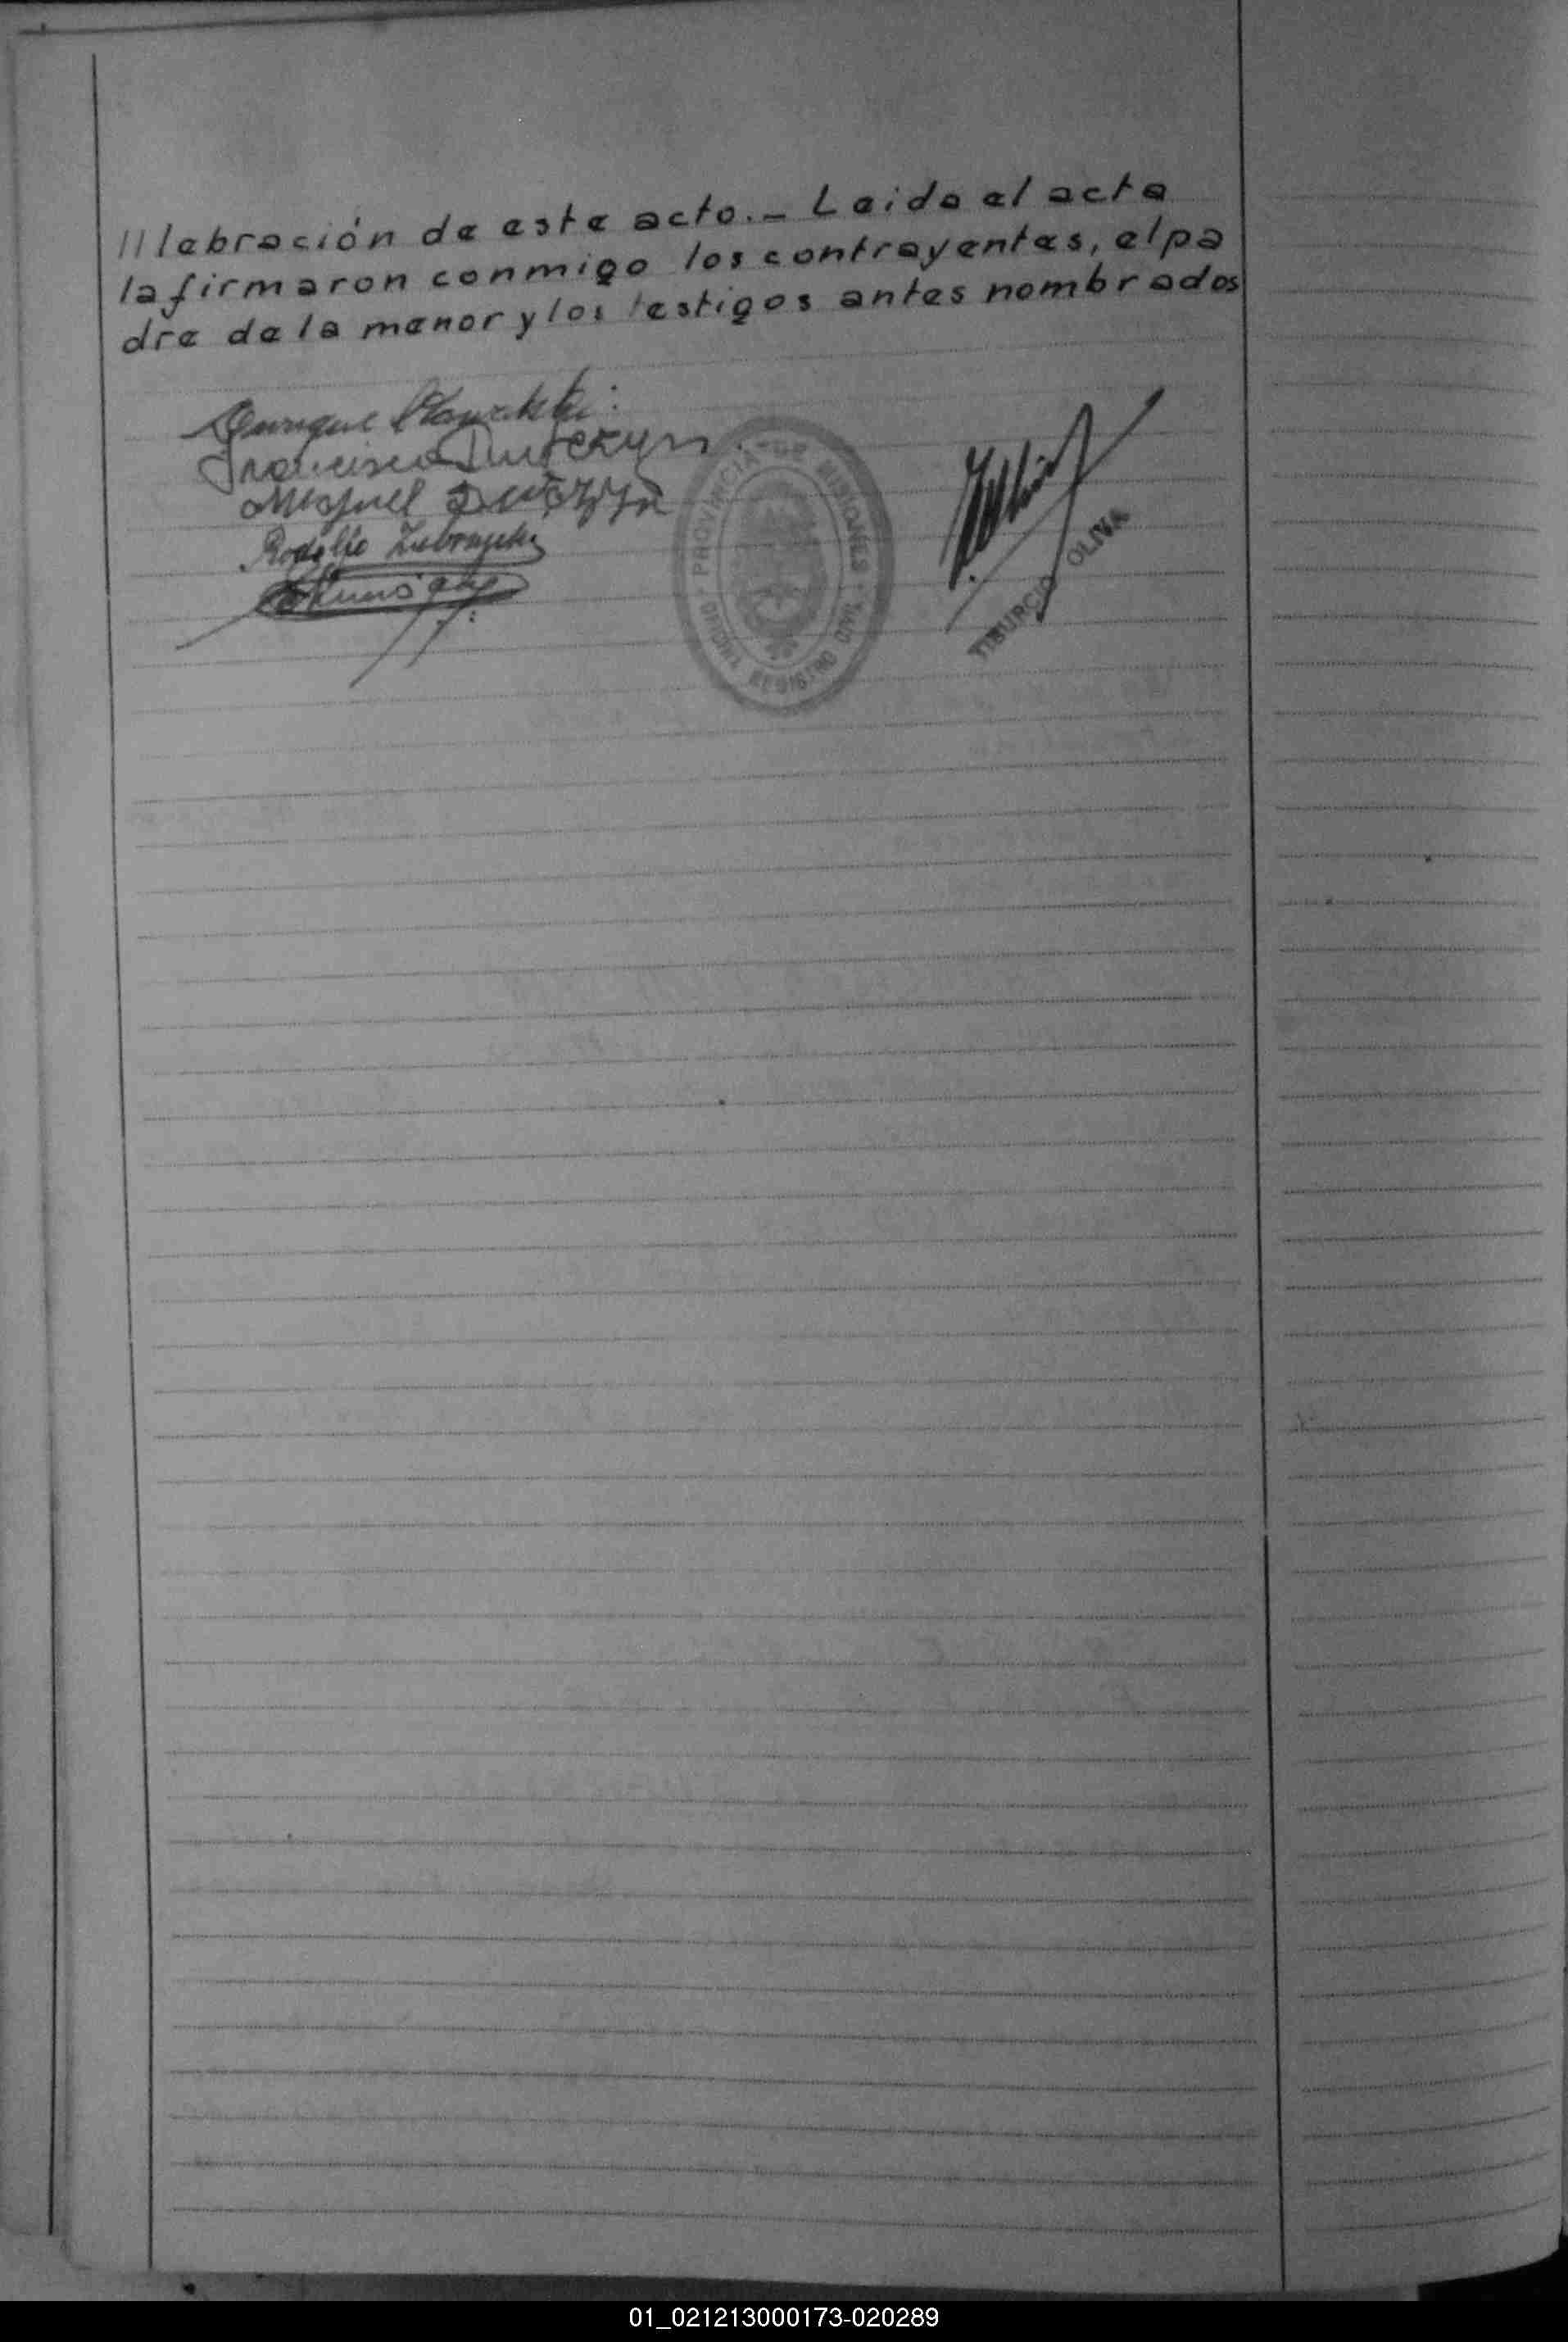 ///lebración de este acto._ Leida el acta
la firmaron conmigo los contrayentes, el pa
dre de la menor y los testigos antes nombrados
Enrique
Francisco
Miguel
Rodolfo
PROVINCIA DE MISIONES
OFICINA REGISTRO CIVIL
TIBURCIO OLIVA
01_021213000173-020289